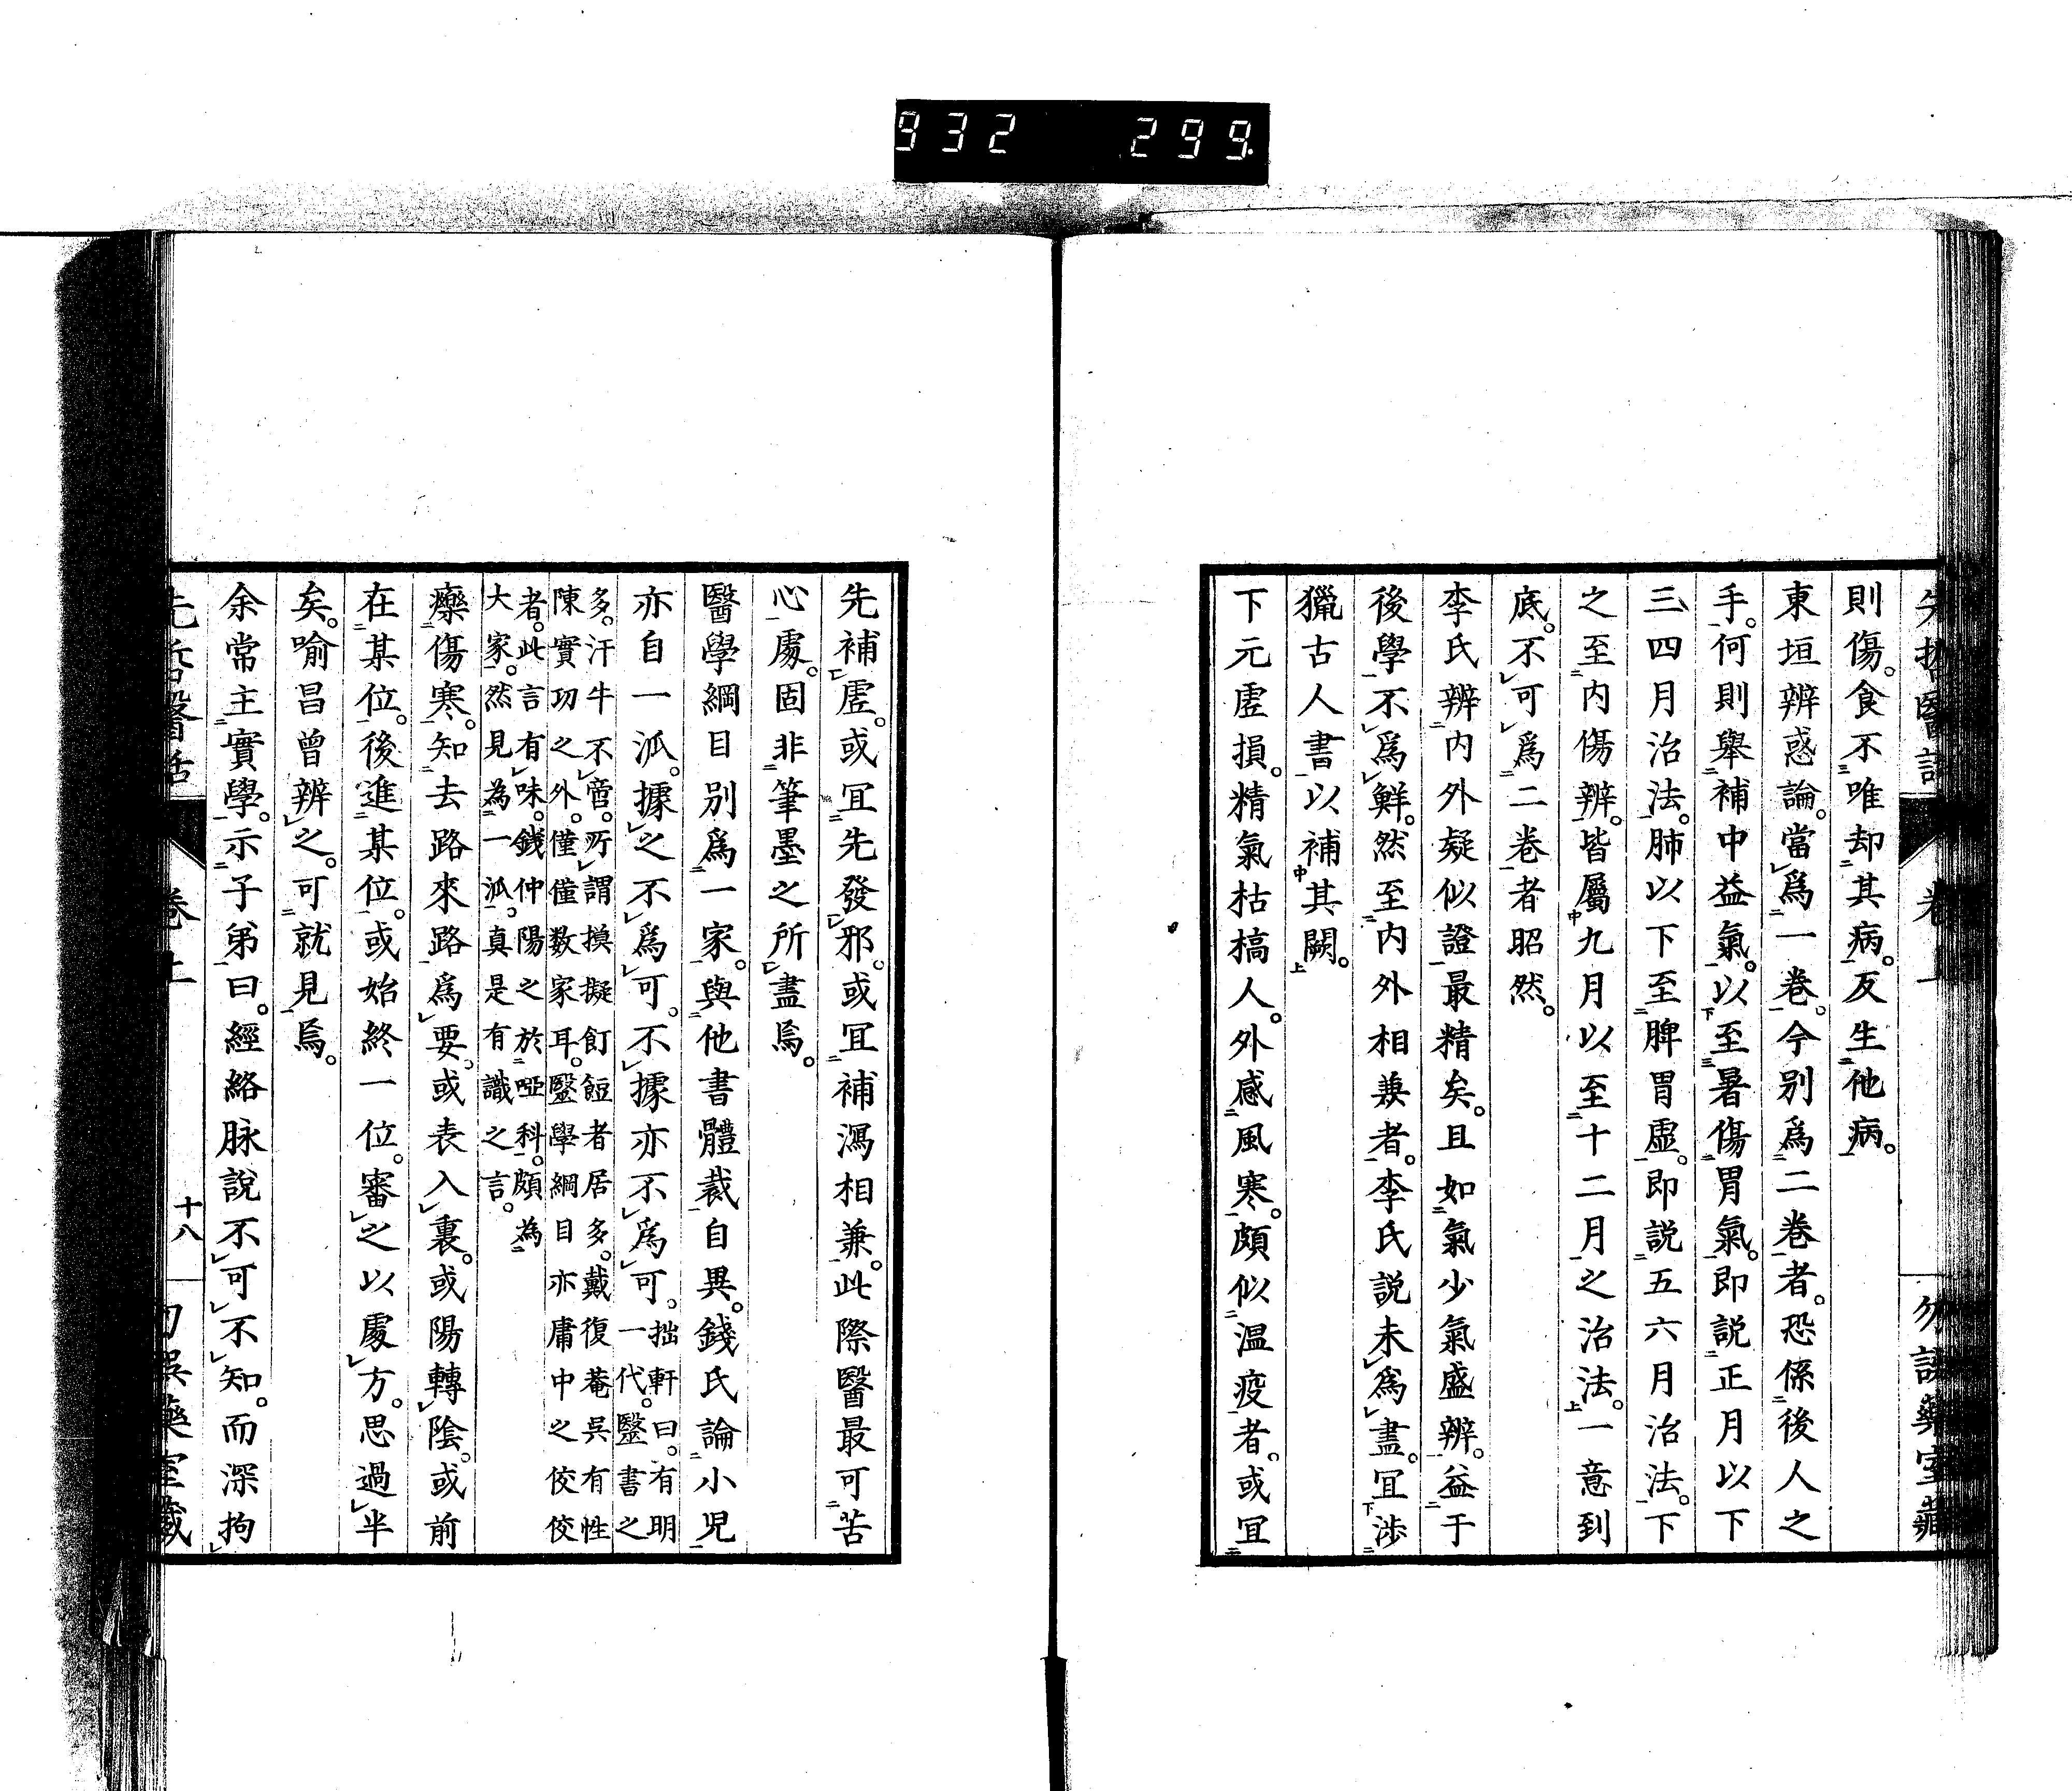 932 299.
先哲醫話 卷上 勿誤藥室藏
則傷。食不唯却其病。反生他病。
東垣辨惑論。當爲一卷。今別爲二卷者。恐係後人之
手。何則舉補中益氣。以至暑傷胃氣。即説正月以下
三四月治法。肺以下至脾胃虛。即説五六月治法。下
之至内傷辨。皆屬九月以至十二月之治法。一意到
底。不可爲二卷者昭然。
李氏辨内外疑似證最精矣。且如氣少氣盛辨。益于
後學不爲鮮。然至内外相兼者。李氏説未爲盡。宜渉
獵古人書以補其闕。
下元虛損。精氣枯槁人。外感風寒。頗似温疫者。或宜
先補虛。或宜先發邪。或宜補瀉相兼。此際醫最可苦
心處。固非筆墨之所盡焉。
醫學綱目別爲一家。與他書體裁自異。錢氏論小児
亦自一派。據之不爲可。不據亦不爲可。拙軒曰。有明一代。醫書之
多。汗牛不啻。所謂摸擬飣餖者居多。戴復菴吳有性
陳實功之外。僅僅数家耳。醫學綱目亦庸中之佼佼
者。此言有味。錢仲陽之於啞科。頗為
大家。然見為一派。真是有識之言。
療傷寒。知去路來路爲要。或表入裏。或陽轉陰。或前
在某位。後進某位。或始終一位。審之以處方。思過半
矣。喻昌曾辨之。可就見焉。
余常主實學。示子弟曰。經絡脉說不可不知。而深拘
先哲醫話 卷上 十八 勿誤藥室藏